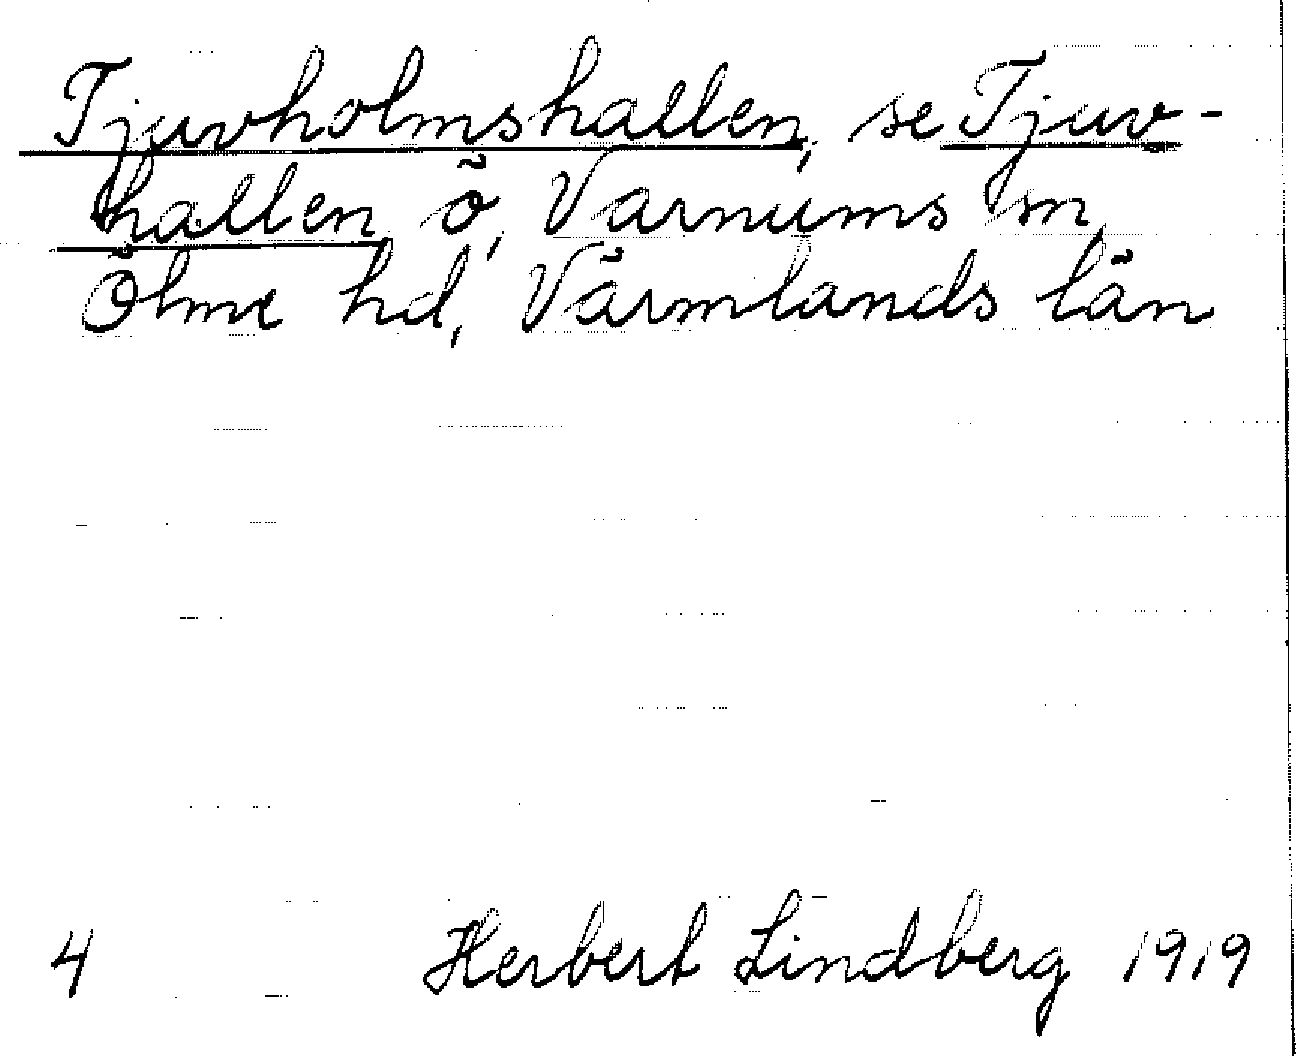 Tjuvholmshallen, se Tjuv-
hallen ö, Varnums sn,
Ölme hd, Värmlands län
4 Herbert Lindberg 1919